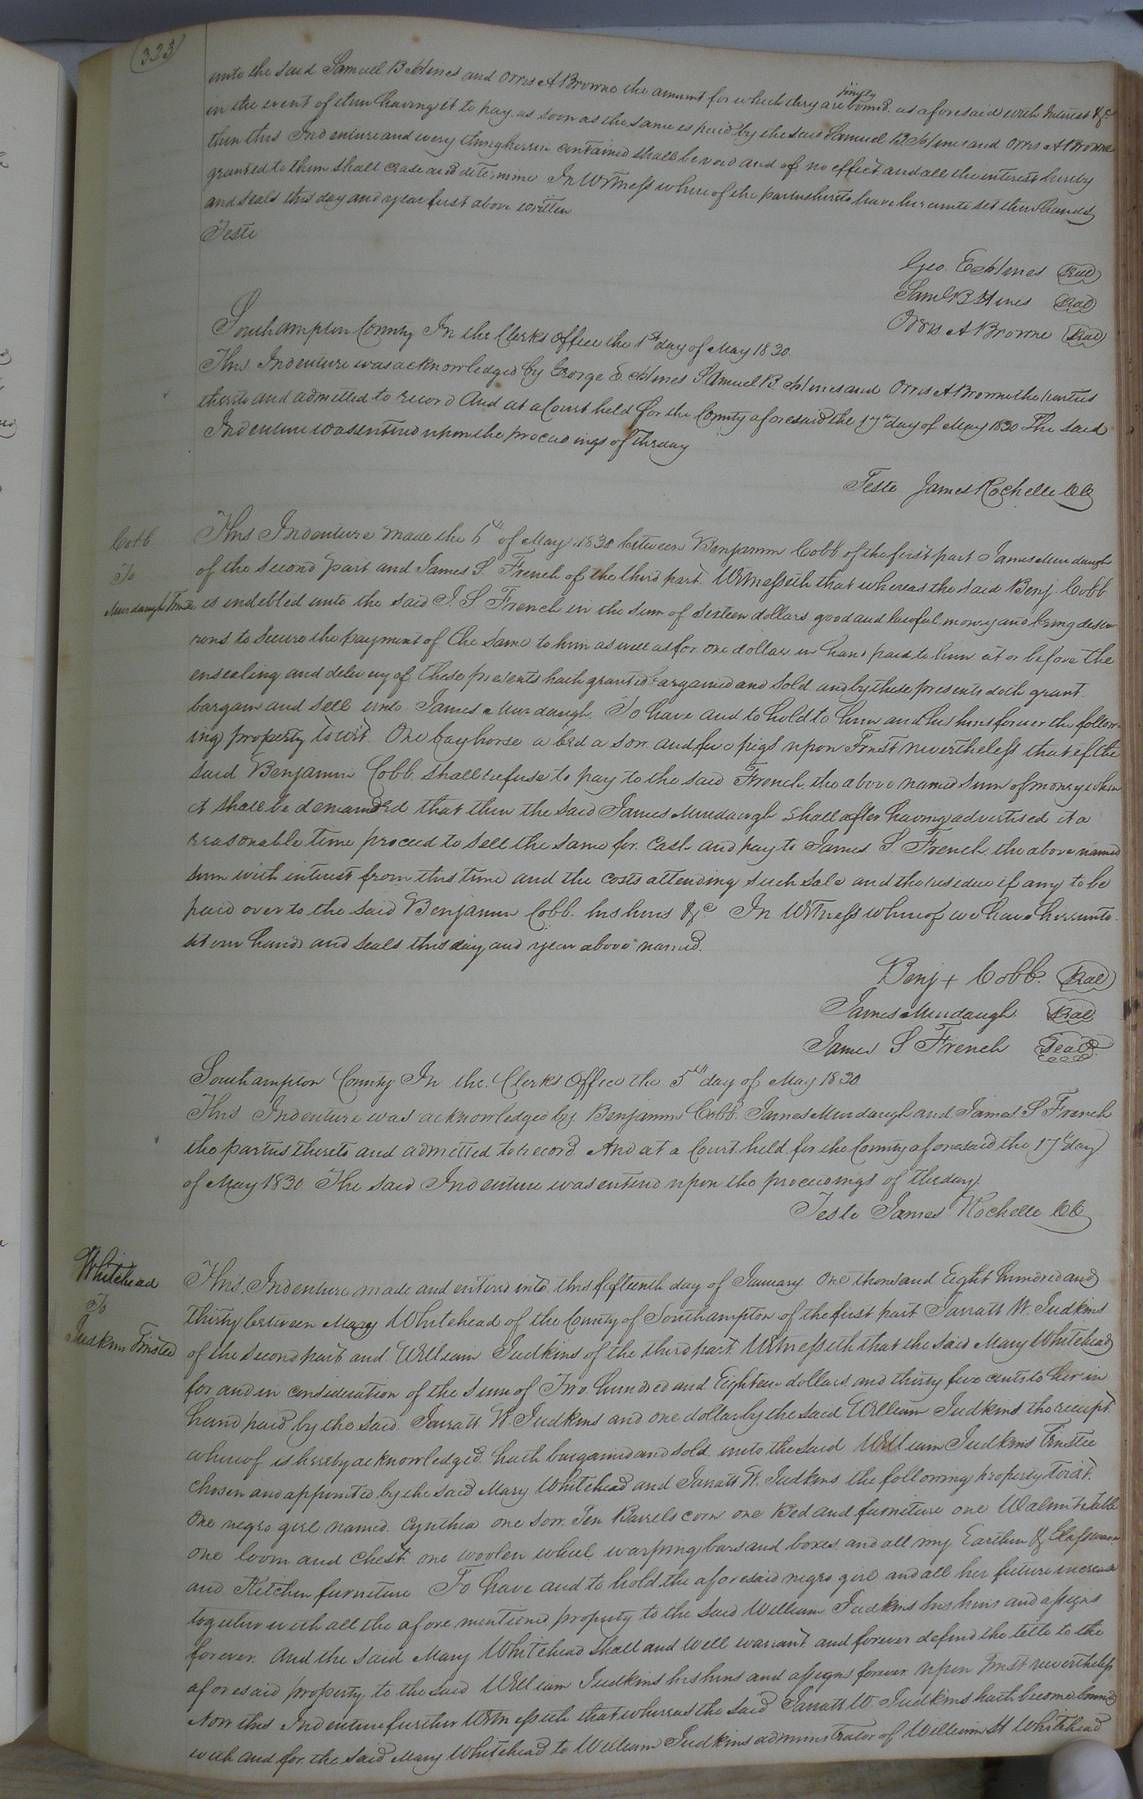 323
unto the said Samuel B Hines and Orris A Browne the amount for which they are jointly bound as aforesaid with Interest &c
in the event of their having it to pay as soon as the same is paid by the said Samuel B Hines and Orris A Browne
then this Indenture and every thing herein contained shall be void and of no effect and all the interest hereby
granted to them shall cease and determine In Witness whereof the parties hereto have hereunto set their hands
and seals this day and year first above written
Teste
Geo. E Hines Seal
Saml B Hines Seal
Orris A Browne Seal
Southampton County In the Clerks Office the 1st day of May 1830.
This Indenture was acknowledged by George E Hines Samuel B Hines and Orris A Browne the parties
thereto and admitted to record And at a Court held for the County aforesaid the 17th day of May 1830 The said
Indenture was entered upon the proceedings of the day
Teste James Rochelle CC
Cobb
To
Murdaugh Trustee
This Indenture made the 5th of May 1830 between Benjamin Cobb of the first part James Murdaugh
of the second part and James S. French of the third part. Witnesseth that whereas the said Benj. Cobb
is indebted unto the said J. S French in the sum of sixteen dollars good and lawful money and being desi
rous to secure the payment of the same to him as well as for one dollar in hand paid to him at or before the
ensealing and delivery of these presents hath granted bargained and sold and by these presents doth grant
bargain and sell unto James Murdaugh. To have and to hold to him and his heirs forever the follow
ing property towit. One bay horse a bed a sow and five pigs upon Trust nevertheless that if the
said Benjamin Cobb shall refuse to pay to the said French the above named sum of money when
it shall be demanded that then the said James Murdaugh shall after having advertised it a
reasonable time proceed to sell the same for Cash and pay to James S French the above named
sum with interest from this time and the costs attending such sale and the residue if any to be
paid over to the said Benjamin Cobb his heirs &c In Witness whereof we have hereunto
set our hands and seals this day and year above named.
Benj + Cobb. Seal
James Murdaugh Seal
James S French Seal
Southampton County In the Clerks Office the 5th day of May 1830
This Indenture was acknowledged by Benjamin Cobb James Murdaugh and James S French
the parties thereto and admitted to record And at a Court held for the County aforesaid the 17th day
of May 1830 The said Indenture was entered upon the proceedings of the day
Teste James Rochelle CC
Whitehead
To
Judkins Trustee
This Indenture made and entered into this fifteenth day of January One thousand Eight hundred and
thirty between Mary Whitehead of the County of Southampton of the first part Jarratt W. Judkins
of the second part and William Judkins of the third part Witnesseth that the said Mary Whitehead
for and in consideration of the sum of Two hundred and Eighteen dollars and thirty five cents to her in
hand paid by the said Jarratt W. Judkins and one dollar by the said William Judkins the receipt
whereof is hereby acknowledged hath bargained and sold unto the said William Judkins Trustee
chosen and appointed by the said Mary Whitehead and Jarratt W. Judkins the following property towit.
One negro girl named Cynthia one sow Ten Barrels corn one Bed and furniture one Walnut table
one loom and chest one woolen wheel warping bars and boxes and all my Earthen & Glassware
and Kitchen furniture To have and to hold the aforesaid negro girl and all her future increase
together with all the afore mentioned property to the said William Judkins his heirs and assigns
forever. And the said Mary Whitehead shall and will warrant and forever defend the title to the
aforesaid property to the said William Judkins his heirs and assigns forever upon Trust nevertheless
Now this Indenture further Witnesseth that whereas the said Jarratt W. Judkins hath become bound
with and for the said Mary Whitehead to William Judkins administrator of William H Whitehead